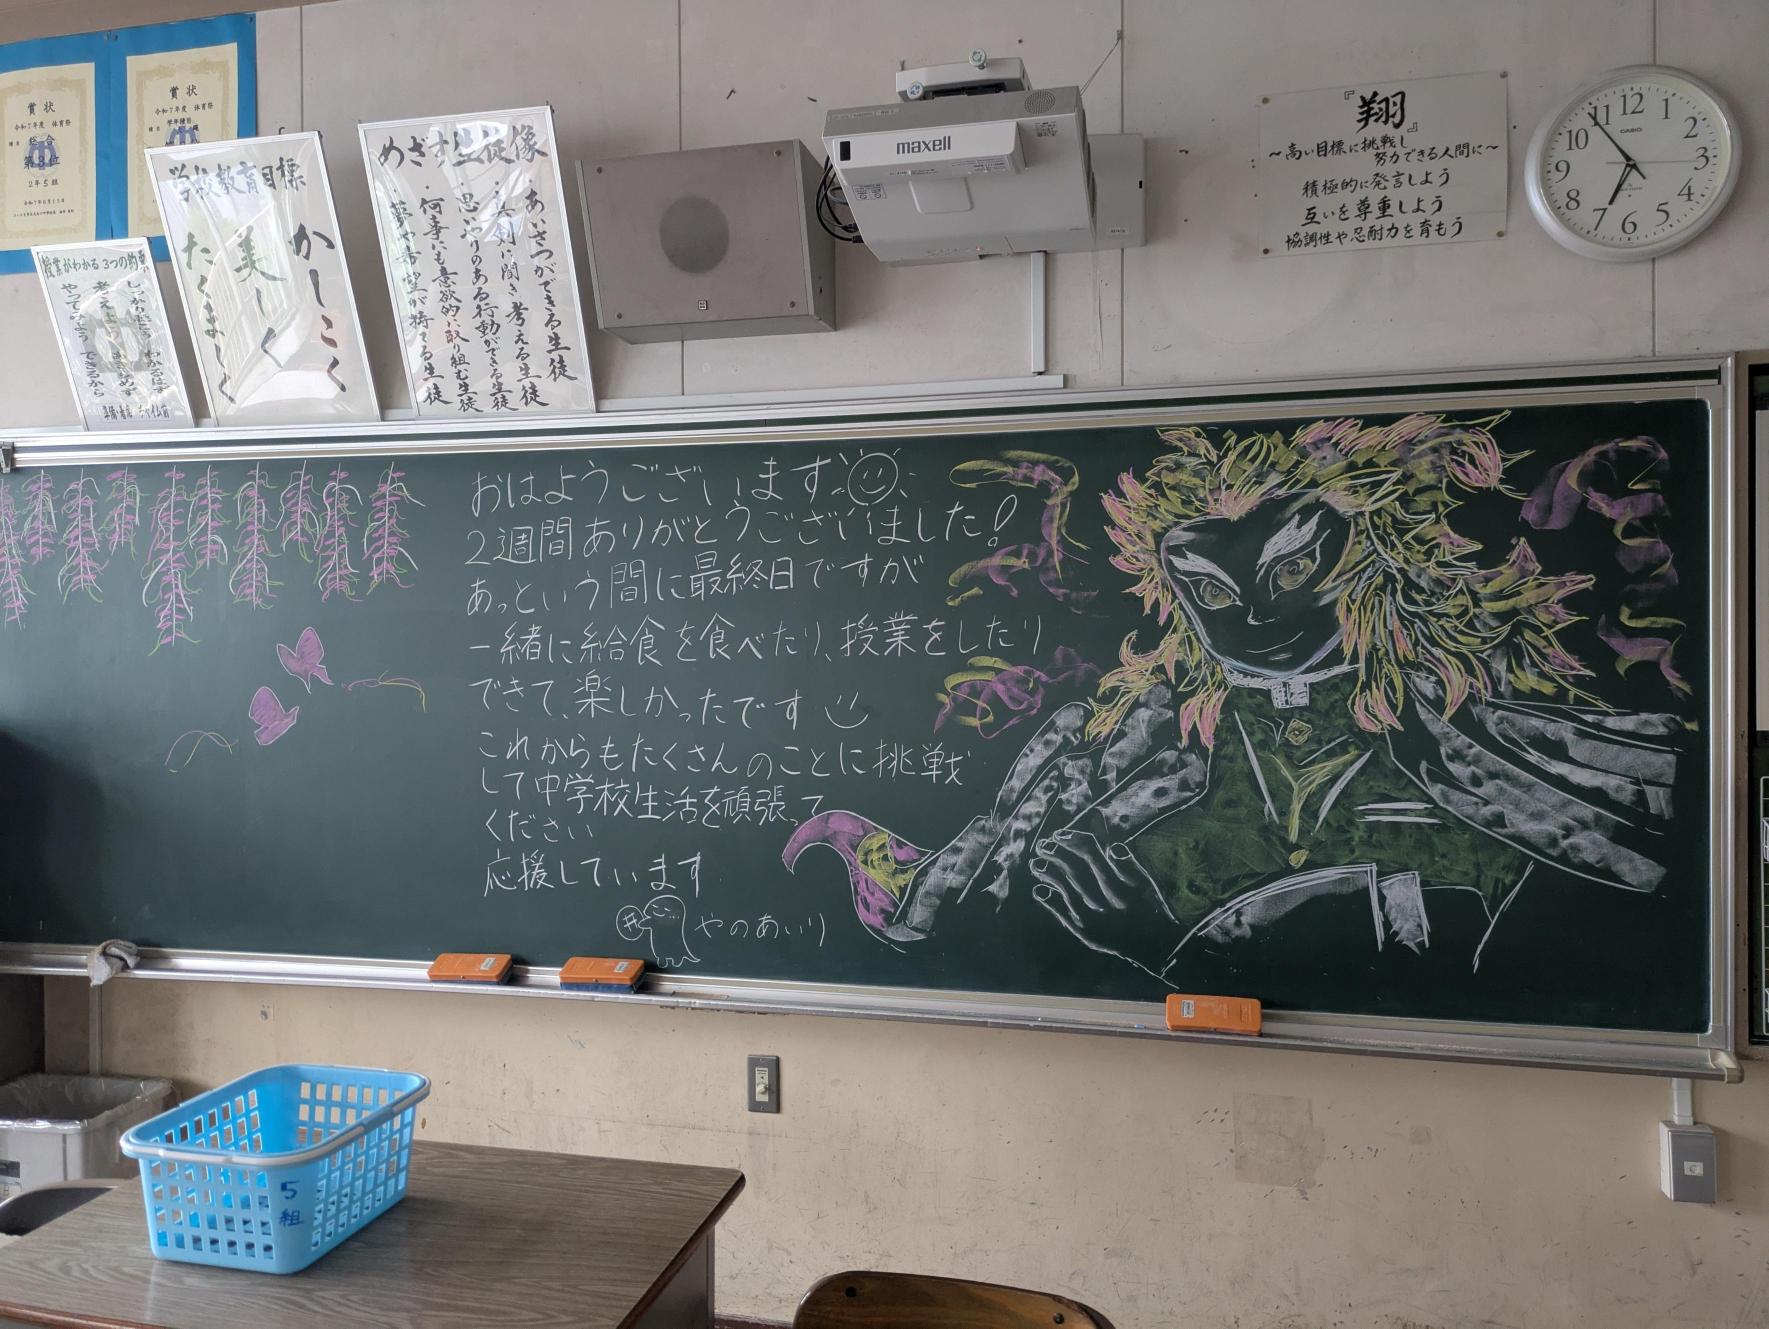 賞状
令和7年度 体育祭
種目 総合
第3位
2年5組
令和7年6月13日
賞状
令和7年度 体育祭
学年種目
授業がわかる3つの約束
学校教育目標
かしこく
美しく
たくましく
めざす生徒像
・あいさつができる生徒
・真剣に聞き、考える生徒
・思いやりのある行動ができる生徒
・何事にも意欲的に取り組む生徒
・夢や希望が持てる生徒
maxell
『翔』
～高い目標に挑戦し
努力できる人間に～
積極的に発言しよう
互いを尊重しよう
協調性や忍耐力を育もう
CASIO
12 1 2 3 4 5 6 7 8 9 10 11
おはようございます
2週間ありがとうございました!
あっという間に最終日ですが
一緒に給食を食べたり、授業をしたり
できて、楽しかったです
これからもたくさんのことに挑戦
して中学校生活を頑張って
ください
応援しています
やのあいり
5
組